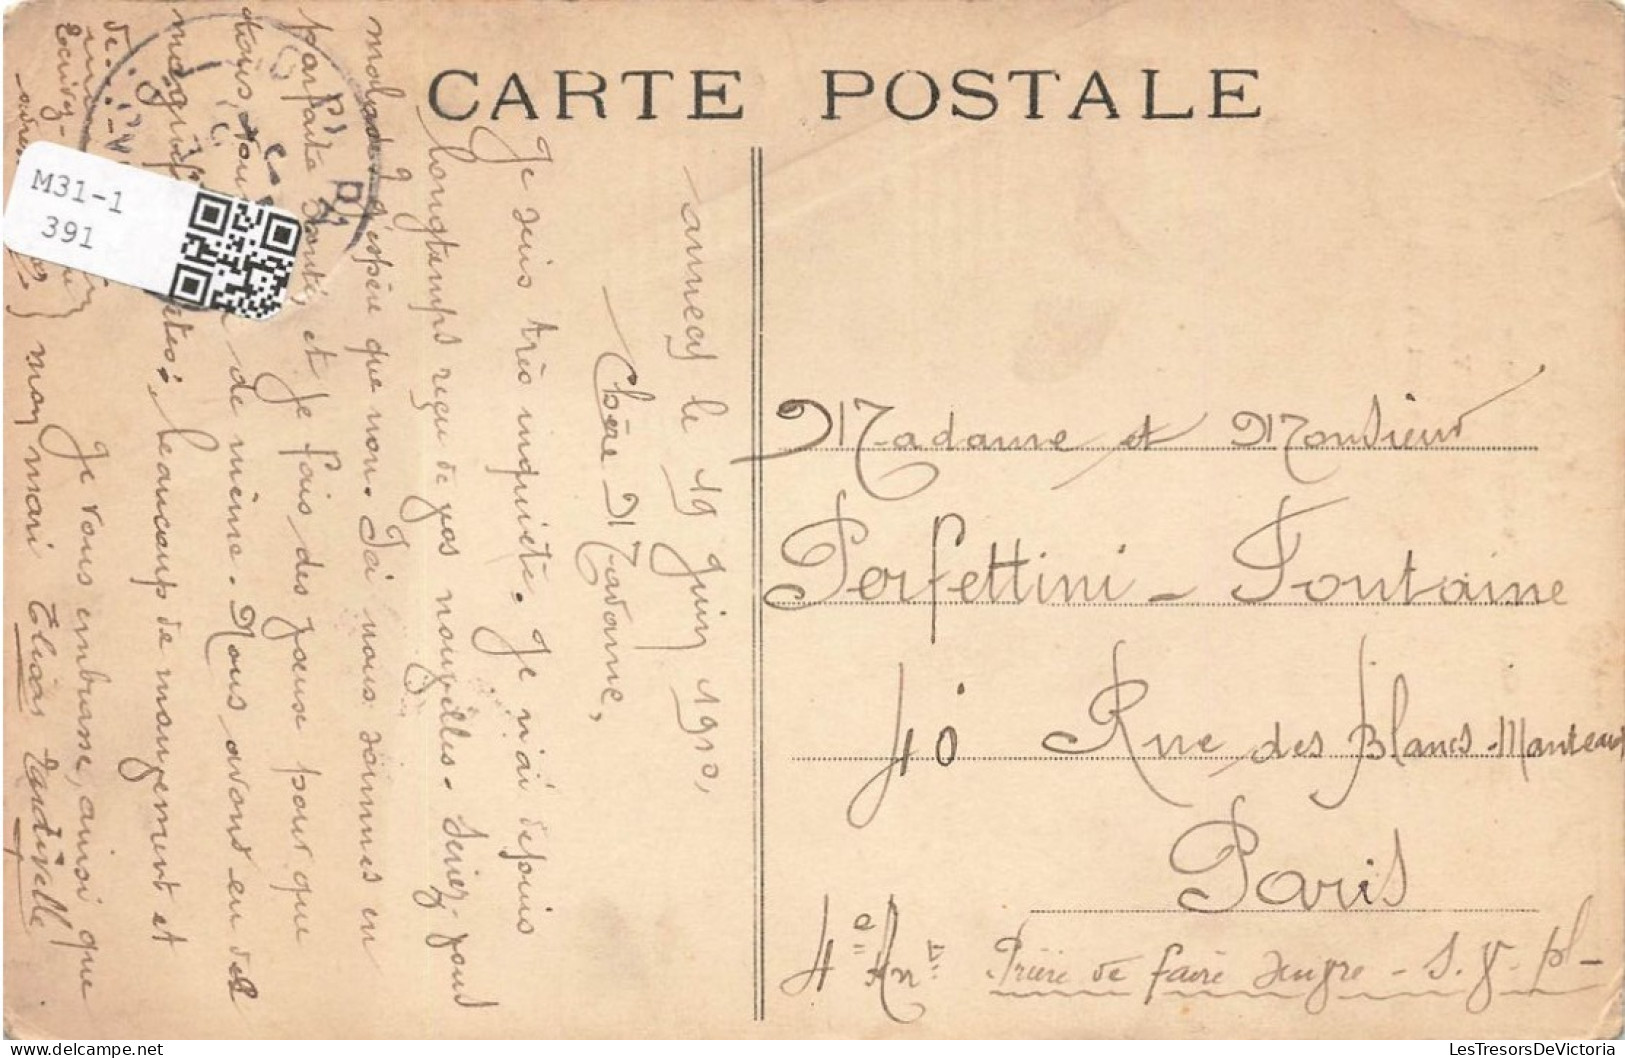 CARTE POSTALE
Annecy le 19 Juin 1910,
Chère Madame,
Je suis très inquiète. Je n'ai depuis
longtemps reçu de vos nouvelles. Seriez-vous
malades, j'espère que non. Ici nous sommes en
parfaite santé, et je fais des vœux pour que
de même. Nous avons eu des
beaucoup de mangement et
de
Je vous embrasse, ainsi que
Ecrivez-
mon mari Elias Tardivelle
M31-1
391
Madame et Monsieur
Perfettini - Fontaine
40 Rue des Blancs-Manteaux
Paris
4e Arrt Prière de faire suivre - S. V. pl-
LesTresorsDeVictoria